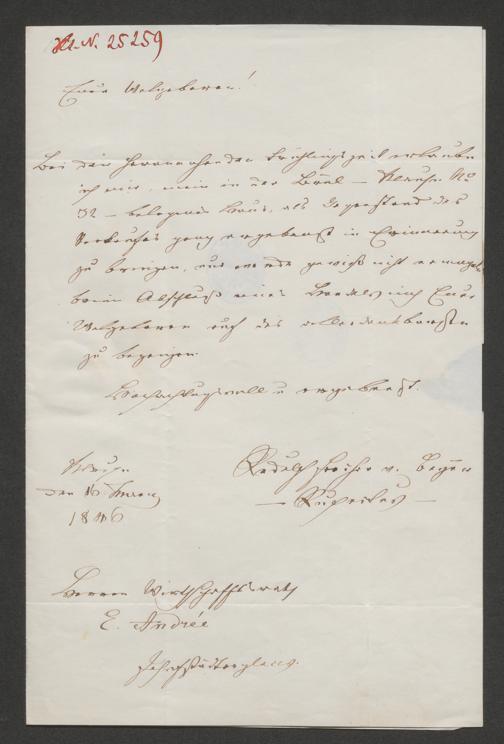 H.I.N. 25259
Euer Wolgeboren!
Bei der herannahenden Frühlingszeit erlaube
ich mir, mein in der Brühl – No
32 – belegenes Haus, als Gegenstand des
Verkaufes ganz ergebenst in Erinnerung
zu bringen, und werde gewiß nicht ermangeln
beim Abschluß eines Handels mich Euer
Wolgeboren auf das allerdankbarste
zu bezeigen.
Hochachtungsvoll u ergebenst.
Rudolf Freiher v.
den 16
1846
Herrn Wirthschaftsrath
E. André